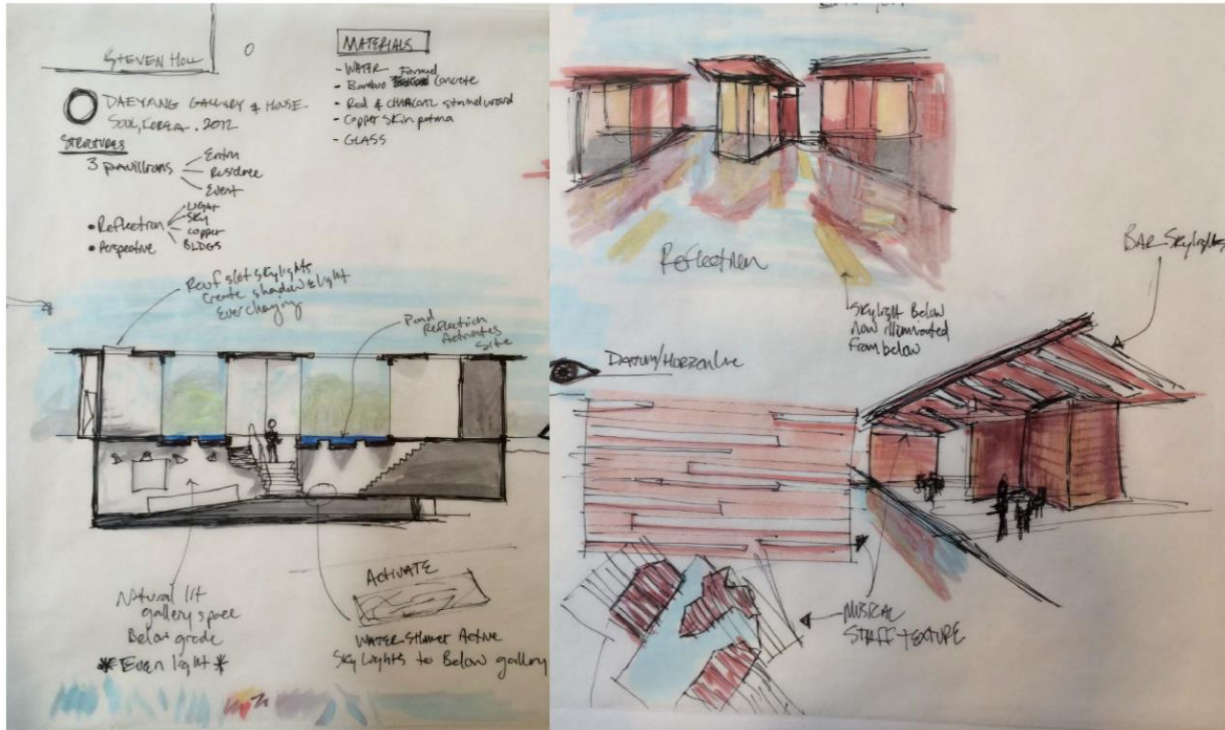 STEVEN HOLL
DAEYANG GALLERY & HOUSE
SOUL, KOREA. 2012
STRUCTURES
3 pavillions
Entry
Residence
Event
• Reflection
• Perspective
LIGHT
SKY
COPPER
BLDGS
MATERIALS
- WATER
- Bamboo Formed Concrete
- Red & CHARCOAL stained wood
- Copper Skin patina
- GLASS
Roof slot skylights
Create shadow & light
Ever changing
Pond
Reflection
Activates
Site
Natural lit
gallery space
Below grade
* Even light *
ACTIVATE
WATER SHIMMER Active
Sky Lights to Below gallery
Reflection
Skylight Below
now illuminated
from below
BAR Skylights
DATUM/HORIZON LINE
MUSICAL
STAFF TEXTURE